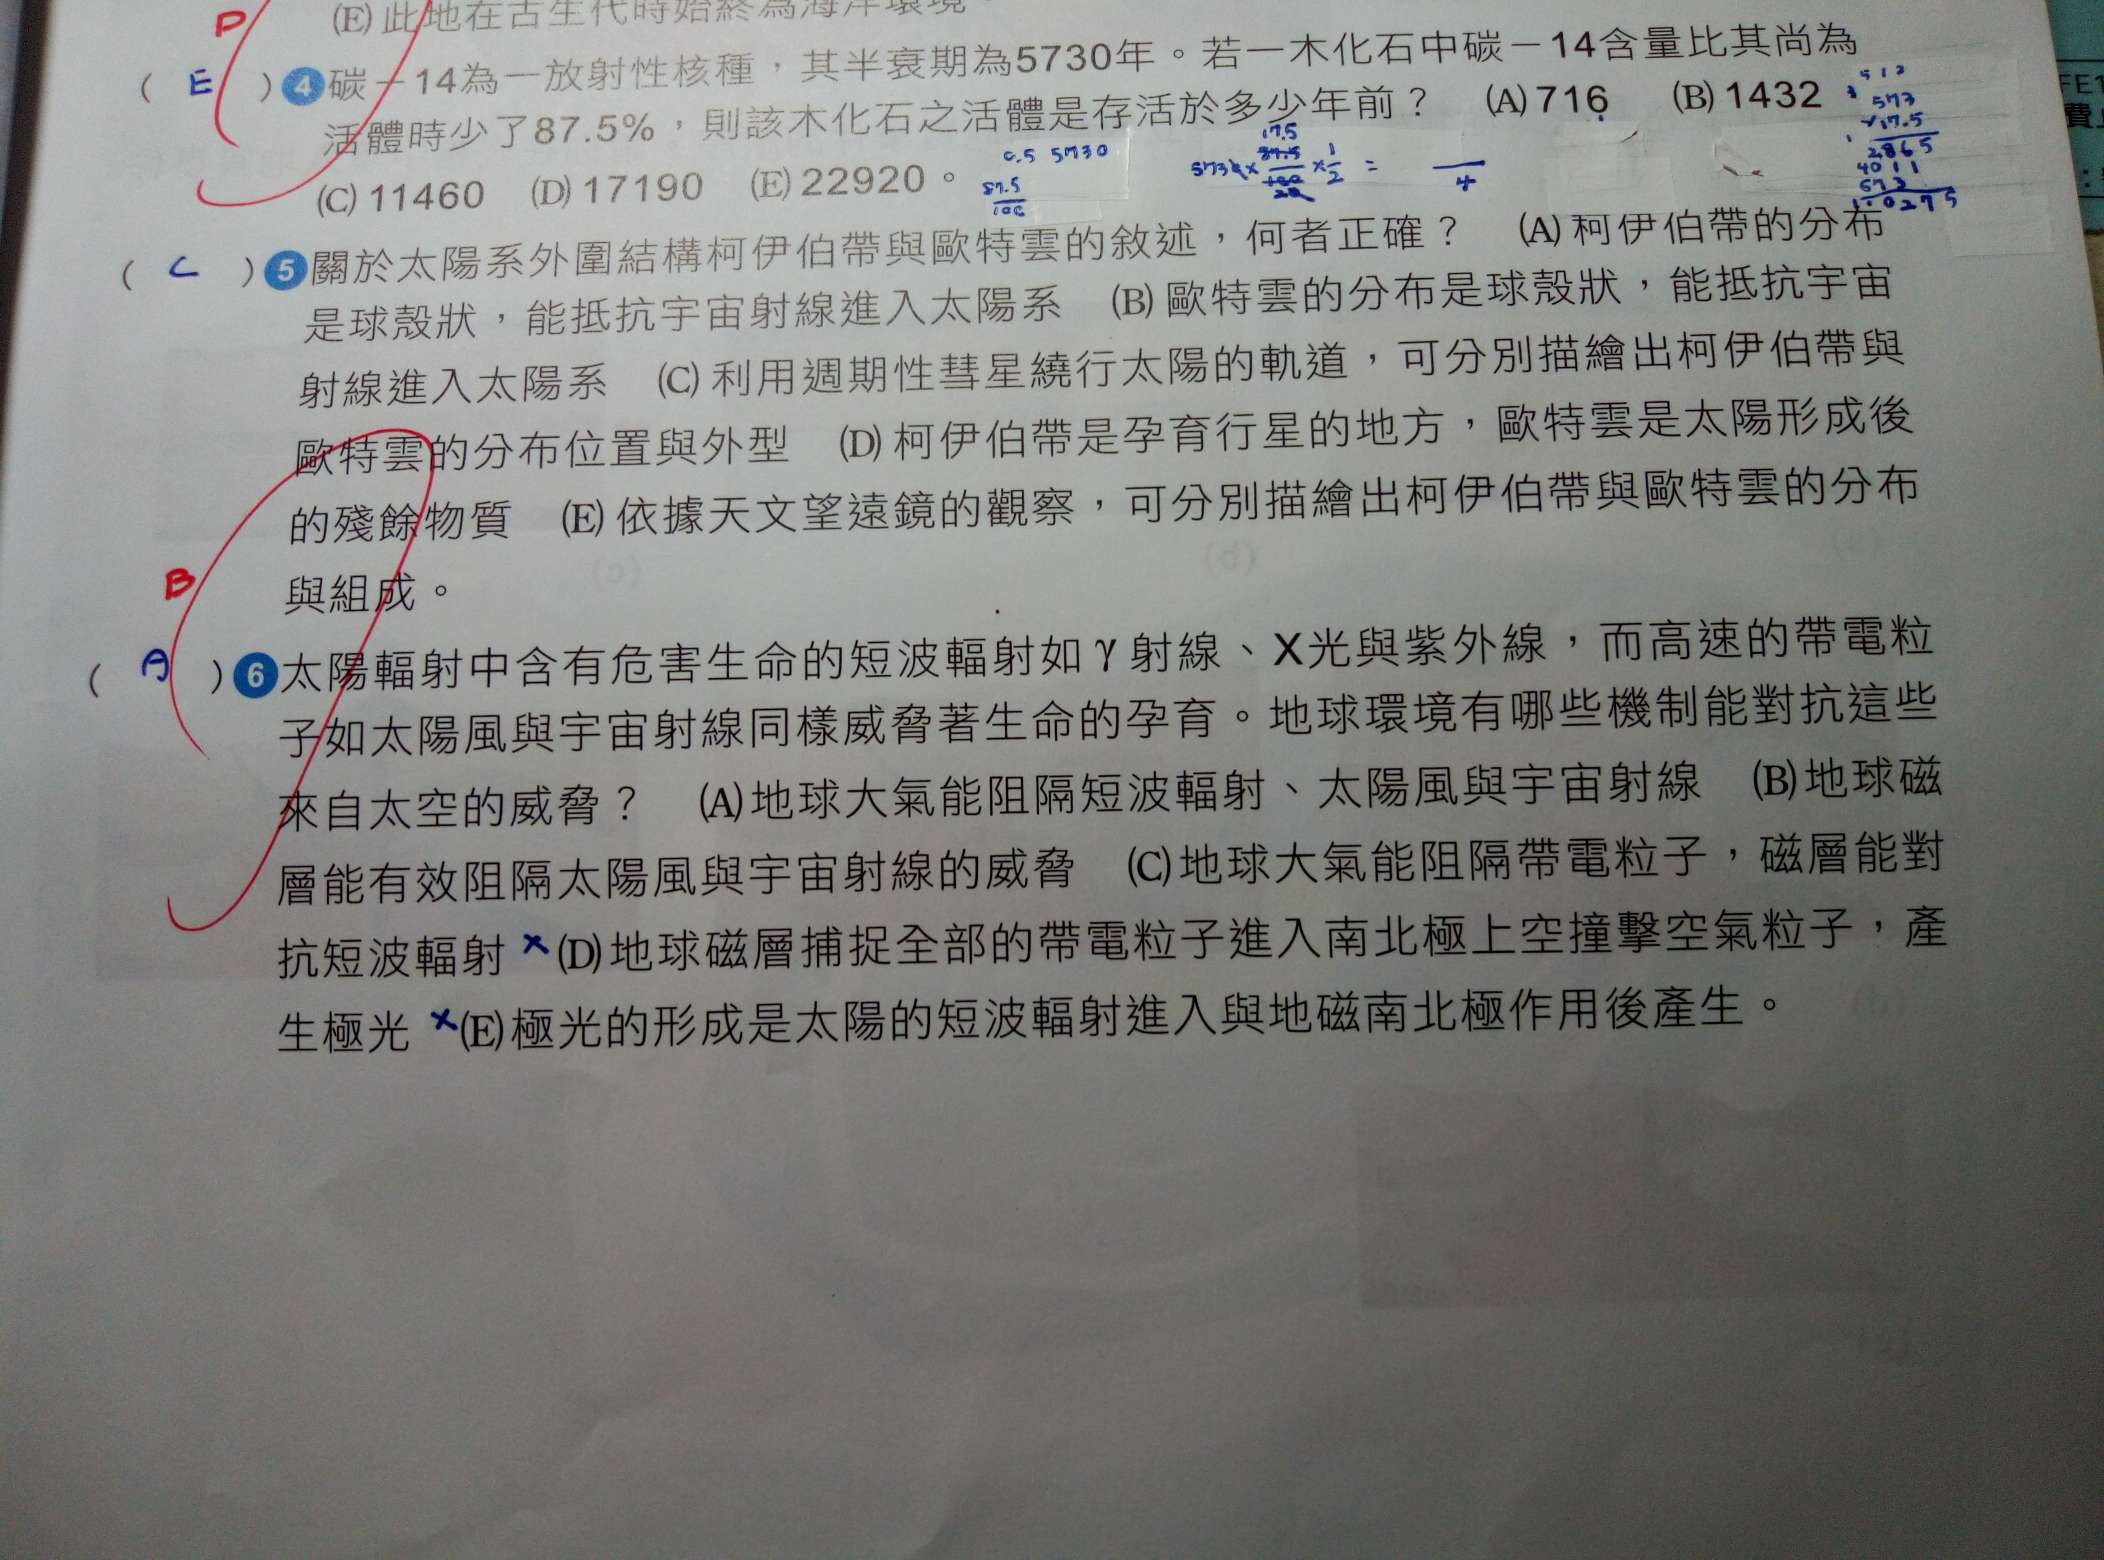 (E) 此地在古生代時始終為海洋環境。
D
( E ) 4 碳－14為一放射性核種，其半衰期為5730年。若一木化石中碳－14含量比其尚為
活體時少了87.5%，則該木化石之活體是存活於多少年前？ (A) 716 (B) 1432
(C) 11460 (D) 17190 (E) 22920。
0.5 5730
87.5
100
17.5
× 1/2 =
4
573
×17.5
2865
4011
573
( C ) 5 關於太陽系外圍結構柯伊伯帶與歐特雲的敘述，何者正確？ (A) 柯伊伯帶的分布
是球殼狀，能抵抗宇宙射線進入太陽系 (B) 歐特雲的分布是球殼狀，能抵抗宇宙
射線進入太陽系 (C) 利用週期性彗星繞行太陽的軌道，可分別描繪出柯伊伯帶與
歐特雲的分布位置與外型 (D) 柯伊伯帶是孕育行星的地方，歐特雲是太陽形成後
的殘餘物質 (E) 依據天文望遠鏡的觀察，可分別描繪出柯伊伯帶與歐特雲的分布
與組成。
B
( A ) 6 太陽輻射中含有危害生命的短波輻射如γ射線、X光與紫外線，而高速的帶電粒
子如太陽風與宇宙射線同樣威脅著生命的孕育。地球環境有哪些機制能對抗這些
來自太空的威脅？ (A) 地球大氣能阻隔短波輻射、太陽風與宇宙射線 (B) 地球磁
層能有效阻隔太陽風與宇宙射線的威脅 (C) 地球大氣能阻隔帶電粒子，磁層能對
抗短波輻射 × (D) 地球磁層捕捉全部的帶電粒子進入南北極上空撞擊空氣粒子，產
生極光 × (E) 極光的形成是太陽的短波輻射進入與地磁南北極作用後產生。